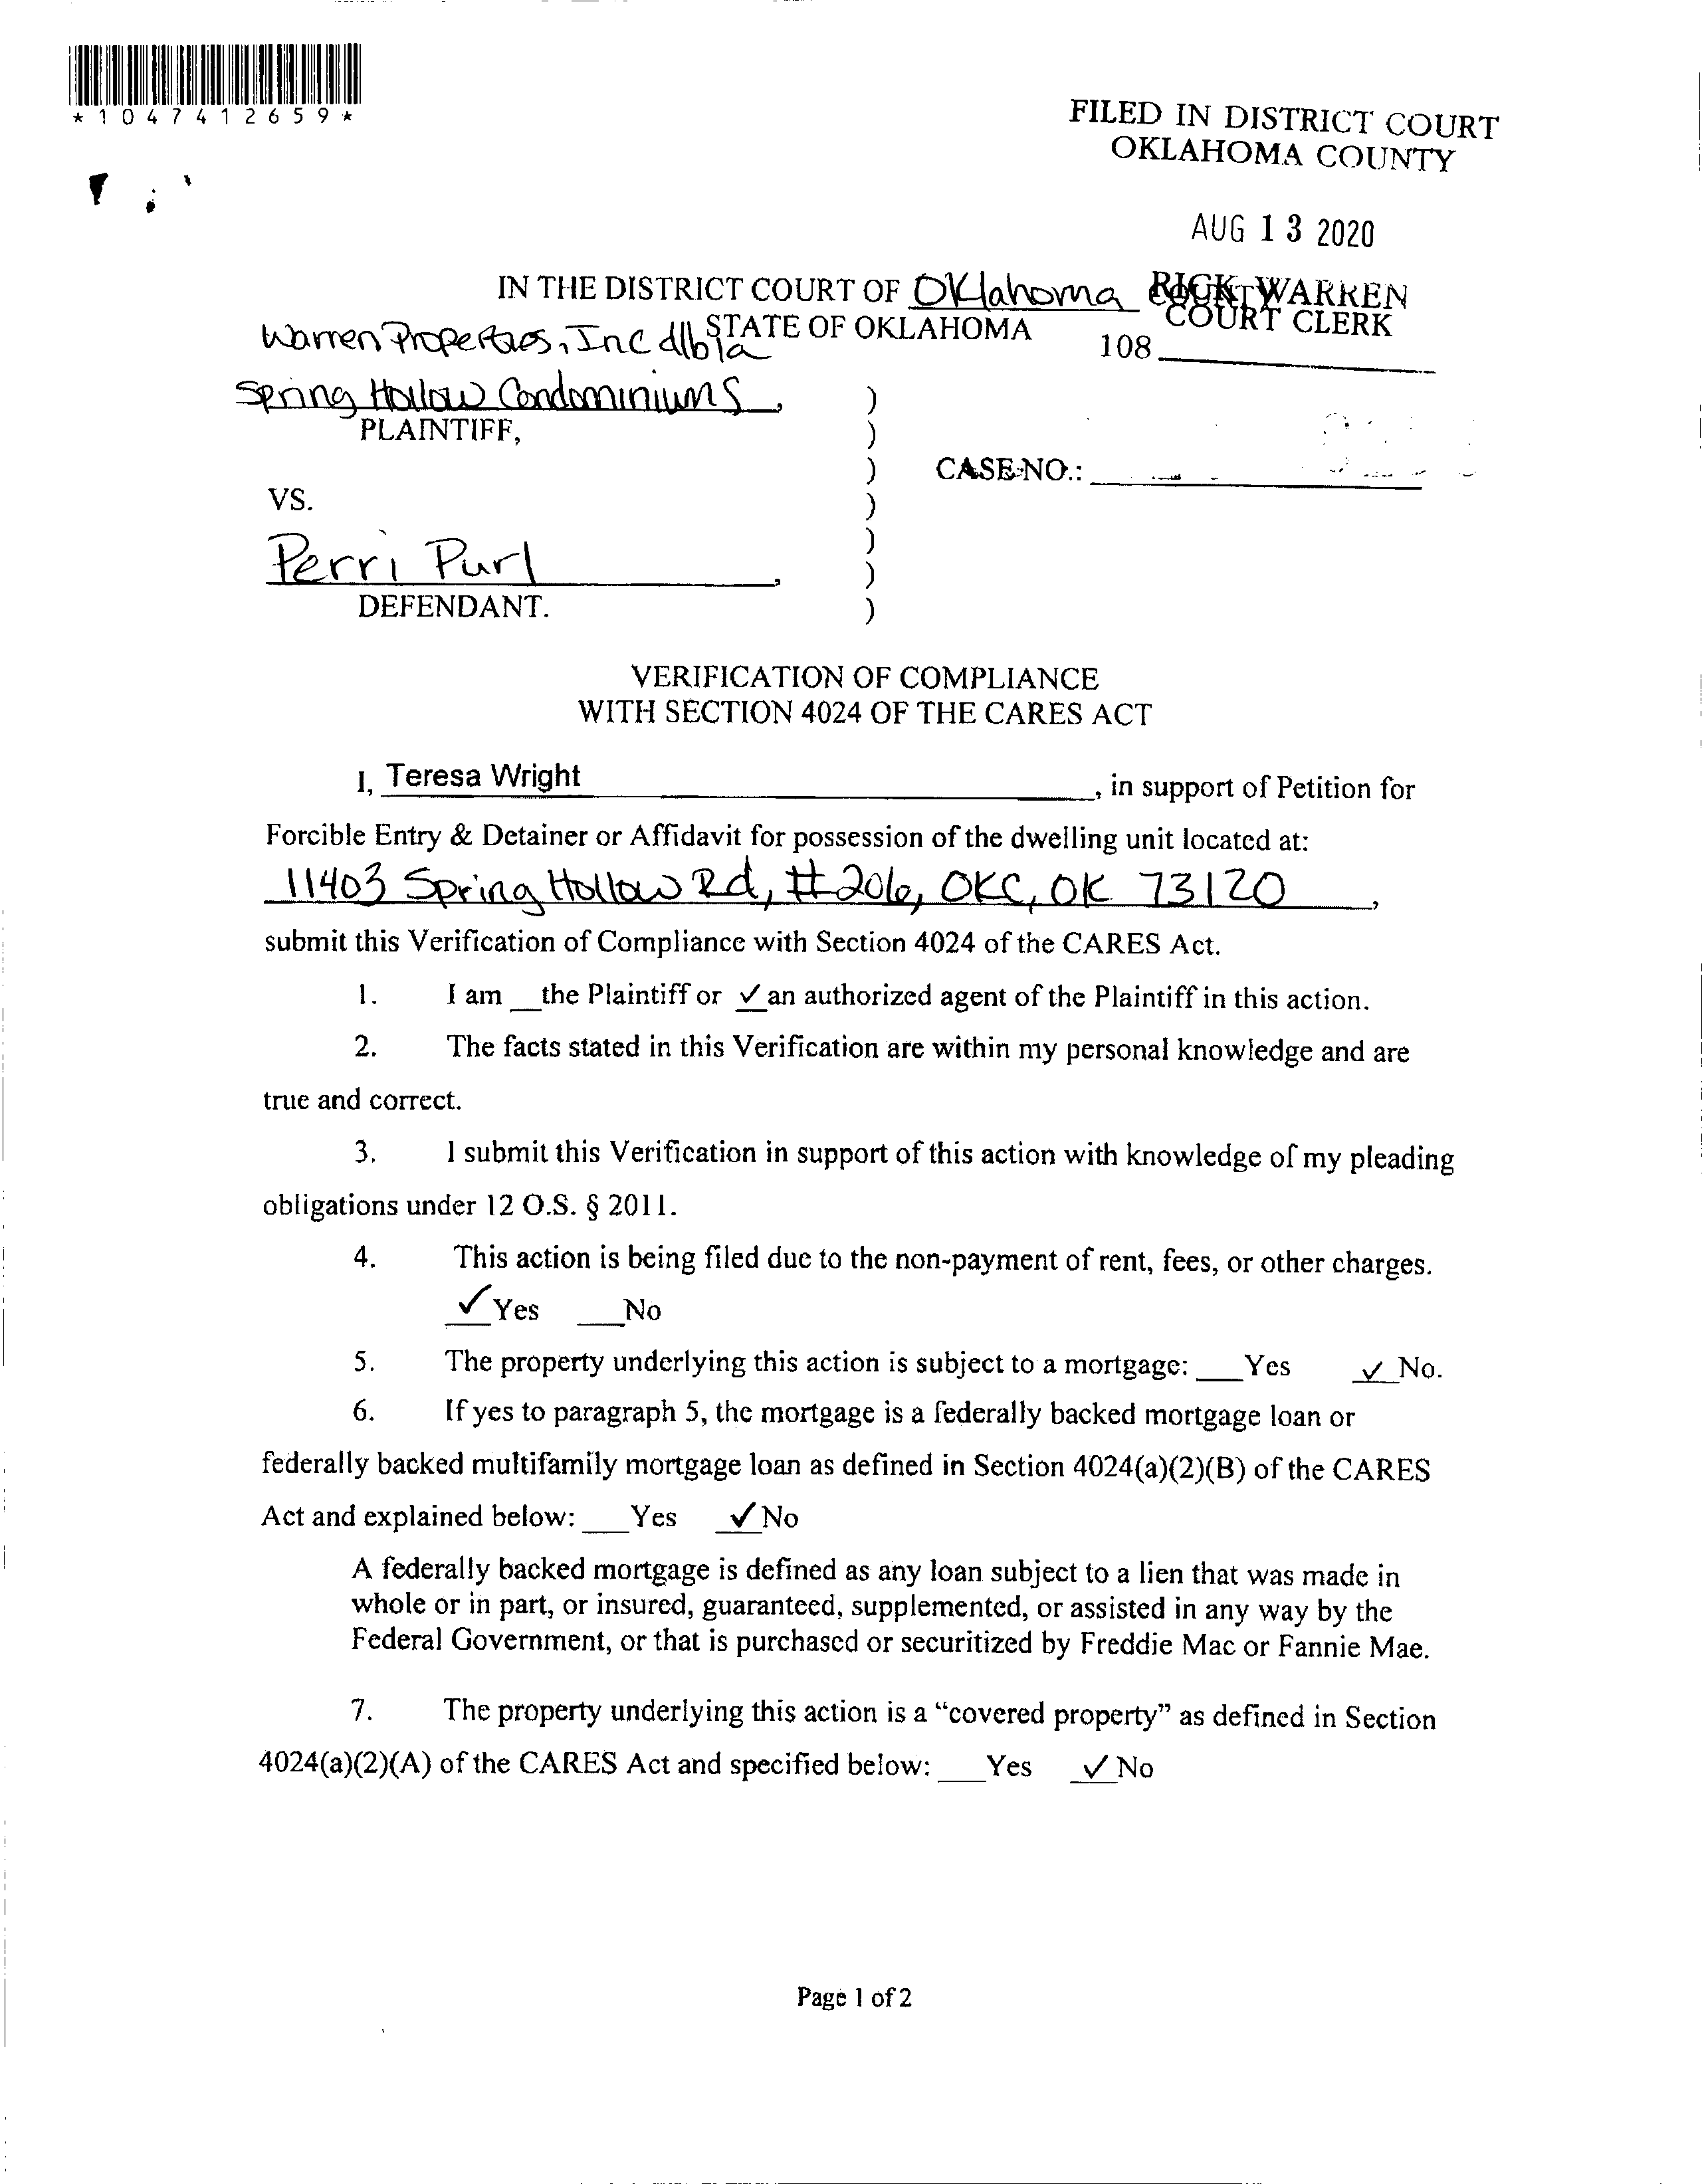 *1047412659*
FILED IN DISTRICT COURT
OKLAHOMA COUNTY
AUG 13 2020
IN THE DISTRICT COURT OF Oklahoma COUNTY
RICK WARREN
STATE OF OKLAHOMA
COURT CLERK
108
Warren Properties, Inc d/b/a
Spring Hollow Condominiums,
PLAINTIFF,
CASE NO.:
VS.
Perri Purl,
DEFENDANT.
)
)
)
)
)
)
)
VERIFICATION OF COMPLIANCE
WITH SECTION 4024 OF THE CARES ACT
I, Teresa Wright, in support of Petition for
Forcible Entry & Detainer or Affidavit for possession of the dwelling unit located at:
11403 Spring Hollow Rd, #206, OKC, OK 73120,
submit this Verification of Compliance with Section 4024 of the CARES Act.
1. I am __the Plaintiff or ✓an authorized agent of the Plaintiff in this action.
2. The facts stated in this Verification are within my personal knowledge and are
true and correct.
3. I submit this Verification in support of this action with knowledge of my pleading
obligations under 12 O.S. § 2011.
4. This action is being filed due to the non-payment of rent, fees, or other charges.
✓Yes ___No
5. The property underlying this action is subject to a mortgage: ___Yes ✓No.
6. If yes to paragraph 5, the mortgage is a federally backed mortgage loan or
federally backed multifamily mortgage loan as defined in Section 4024(a)(2)(B) of the CARES
Act and explained below: ___Yes ✓No
A federally backed mortgage is defined as any loan subject to a lien that was made in
whole or in part, or insured, guaranteed, supplemented, or assisted in any way by the
Federal Government, or that is purchased or securitized by Freddie Mac or Fannie Mae.
7. The property underlying this action is a “covered property” as defined in Section
4024(a)(2)(A) of the CARES Act and specified below: ___Yes ✓No
Page 1 of 2